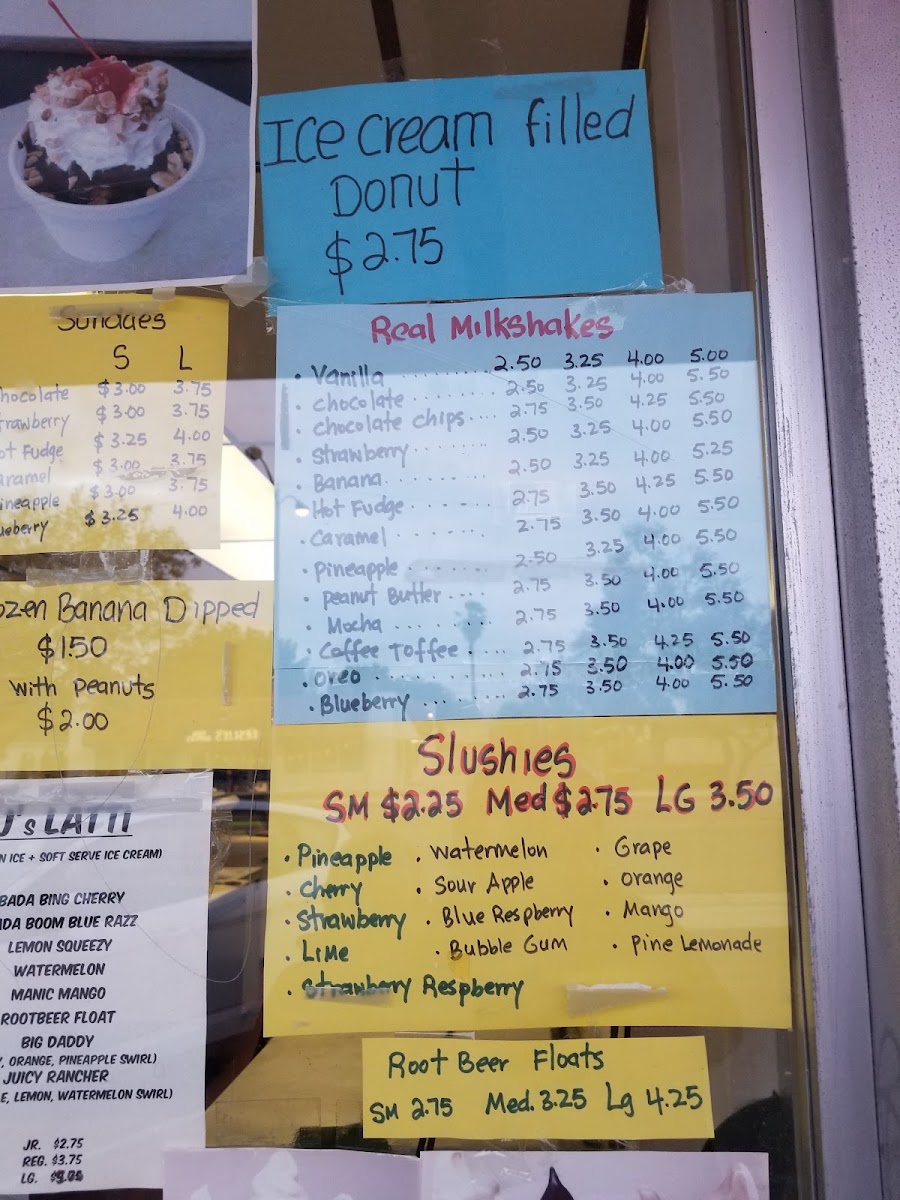 Ice Cream filled
Donut
$2.75
Sundaes
S L
hocolate $3.00 3.75
trawberry $3.00 3.75
ot Fudge $3.25 4.00
aramel $3.00 3.75
ineapple $3.00 3.75
ueberry $3.25 4.00
ozen Banana Dipped
$1.50
with Peanuts
$2.00
J's LATTI
N ICE + SOFT SERVE ICE CREAM)
BADA BING CHERRY
DA BOOM BLUE RAZZ
LEMON SQUEEZY
WATERMELON
MANIC MANGO
ROOTBEER FLOAT
BIG DADDY
, ORANGE, PINEAPPLE SWIRL)
JUICY RANCHER
E, LEMON, WATERMELON SWIRL)
JR. $2.75
REG. $3.75
LG.
Real Milkshakes
• Vanilla ......... 2.50 3.25 4.00 5.00
• Chocolate ........ 2.50 3.25 4.00 5.50
• Chocolate Chips.... 2.75 3.50 4.25 5.50
• Strawberry ........ 2.50 3.25 4.00 5.50
• Banana ........ 2.50 3.25 4.00 5.25
• Hot Fudge ........ 2.75 3.50 4.25 5.50
• Caramel ........ 2.75 3.50 4.00 5.50
• Pineapple ........ 2.50 3.25 4.00 5.50
• Peanut Butter .... 2.75 3.50 4.00 5.50
• Mocha ......... 2.75 3.50 4.00 5.50
• Coffee Toffee .... 2.75 3.50 4.25 5.50
• Oreo ........... 2.75 3.50 4.00 5.50
• Blueberry ........ 2.75 3.50 4.00 5.50
Slushies
SM $2.25 Med $2.75 LG 3.50
• Pineapple • Watermelon • Grape
• Cherry • Sour Apple • Orange
• Strawberry • Blue Respberry • Mango
• Lime • Bubble Gum • Pine Lemonade
• Strawberry Respberry
Root Beer Floats
SM 2.75 Med. 3.25 Lg 4.25